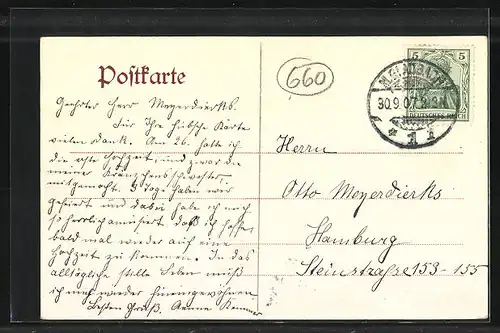 Postkarte
660
5 5
30.9.07
DEUTSCHES REICH
* 1
Geehrter Herr Meyerdierks.
Für Ihre hübsche Karte
vielen Dank. Am 26. hatte ich
die erste Hochzeit und zwar die
meiner Kränzchensschwester,
mitgemacht. 3 Tage haben wir
gefeiert und dabei habe ich mich
so herrlich amüsiert, daß ich hoffe
bald mal wieder auf eine
Hochzeit zu kommen. In das
alltägliche stille Leben muß
ich mich wieder hineingewöhnen.
Besten Gruß. Aenne
Herrn
Otto Meyerdierks
Hamburg
Steinstrasse 153-155